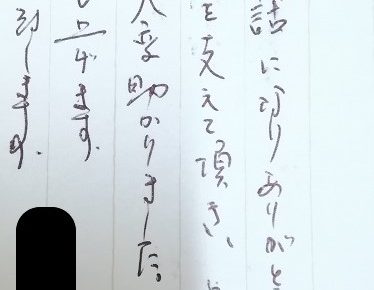 話になりありがと
を支えて頂き、
変助かりました。
上げます。
致します。